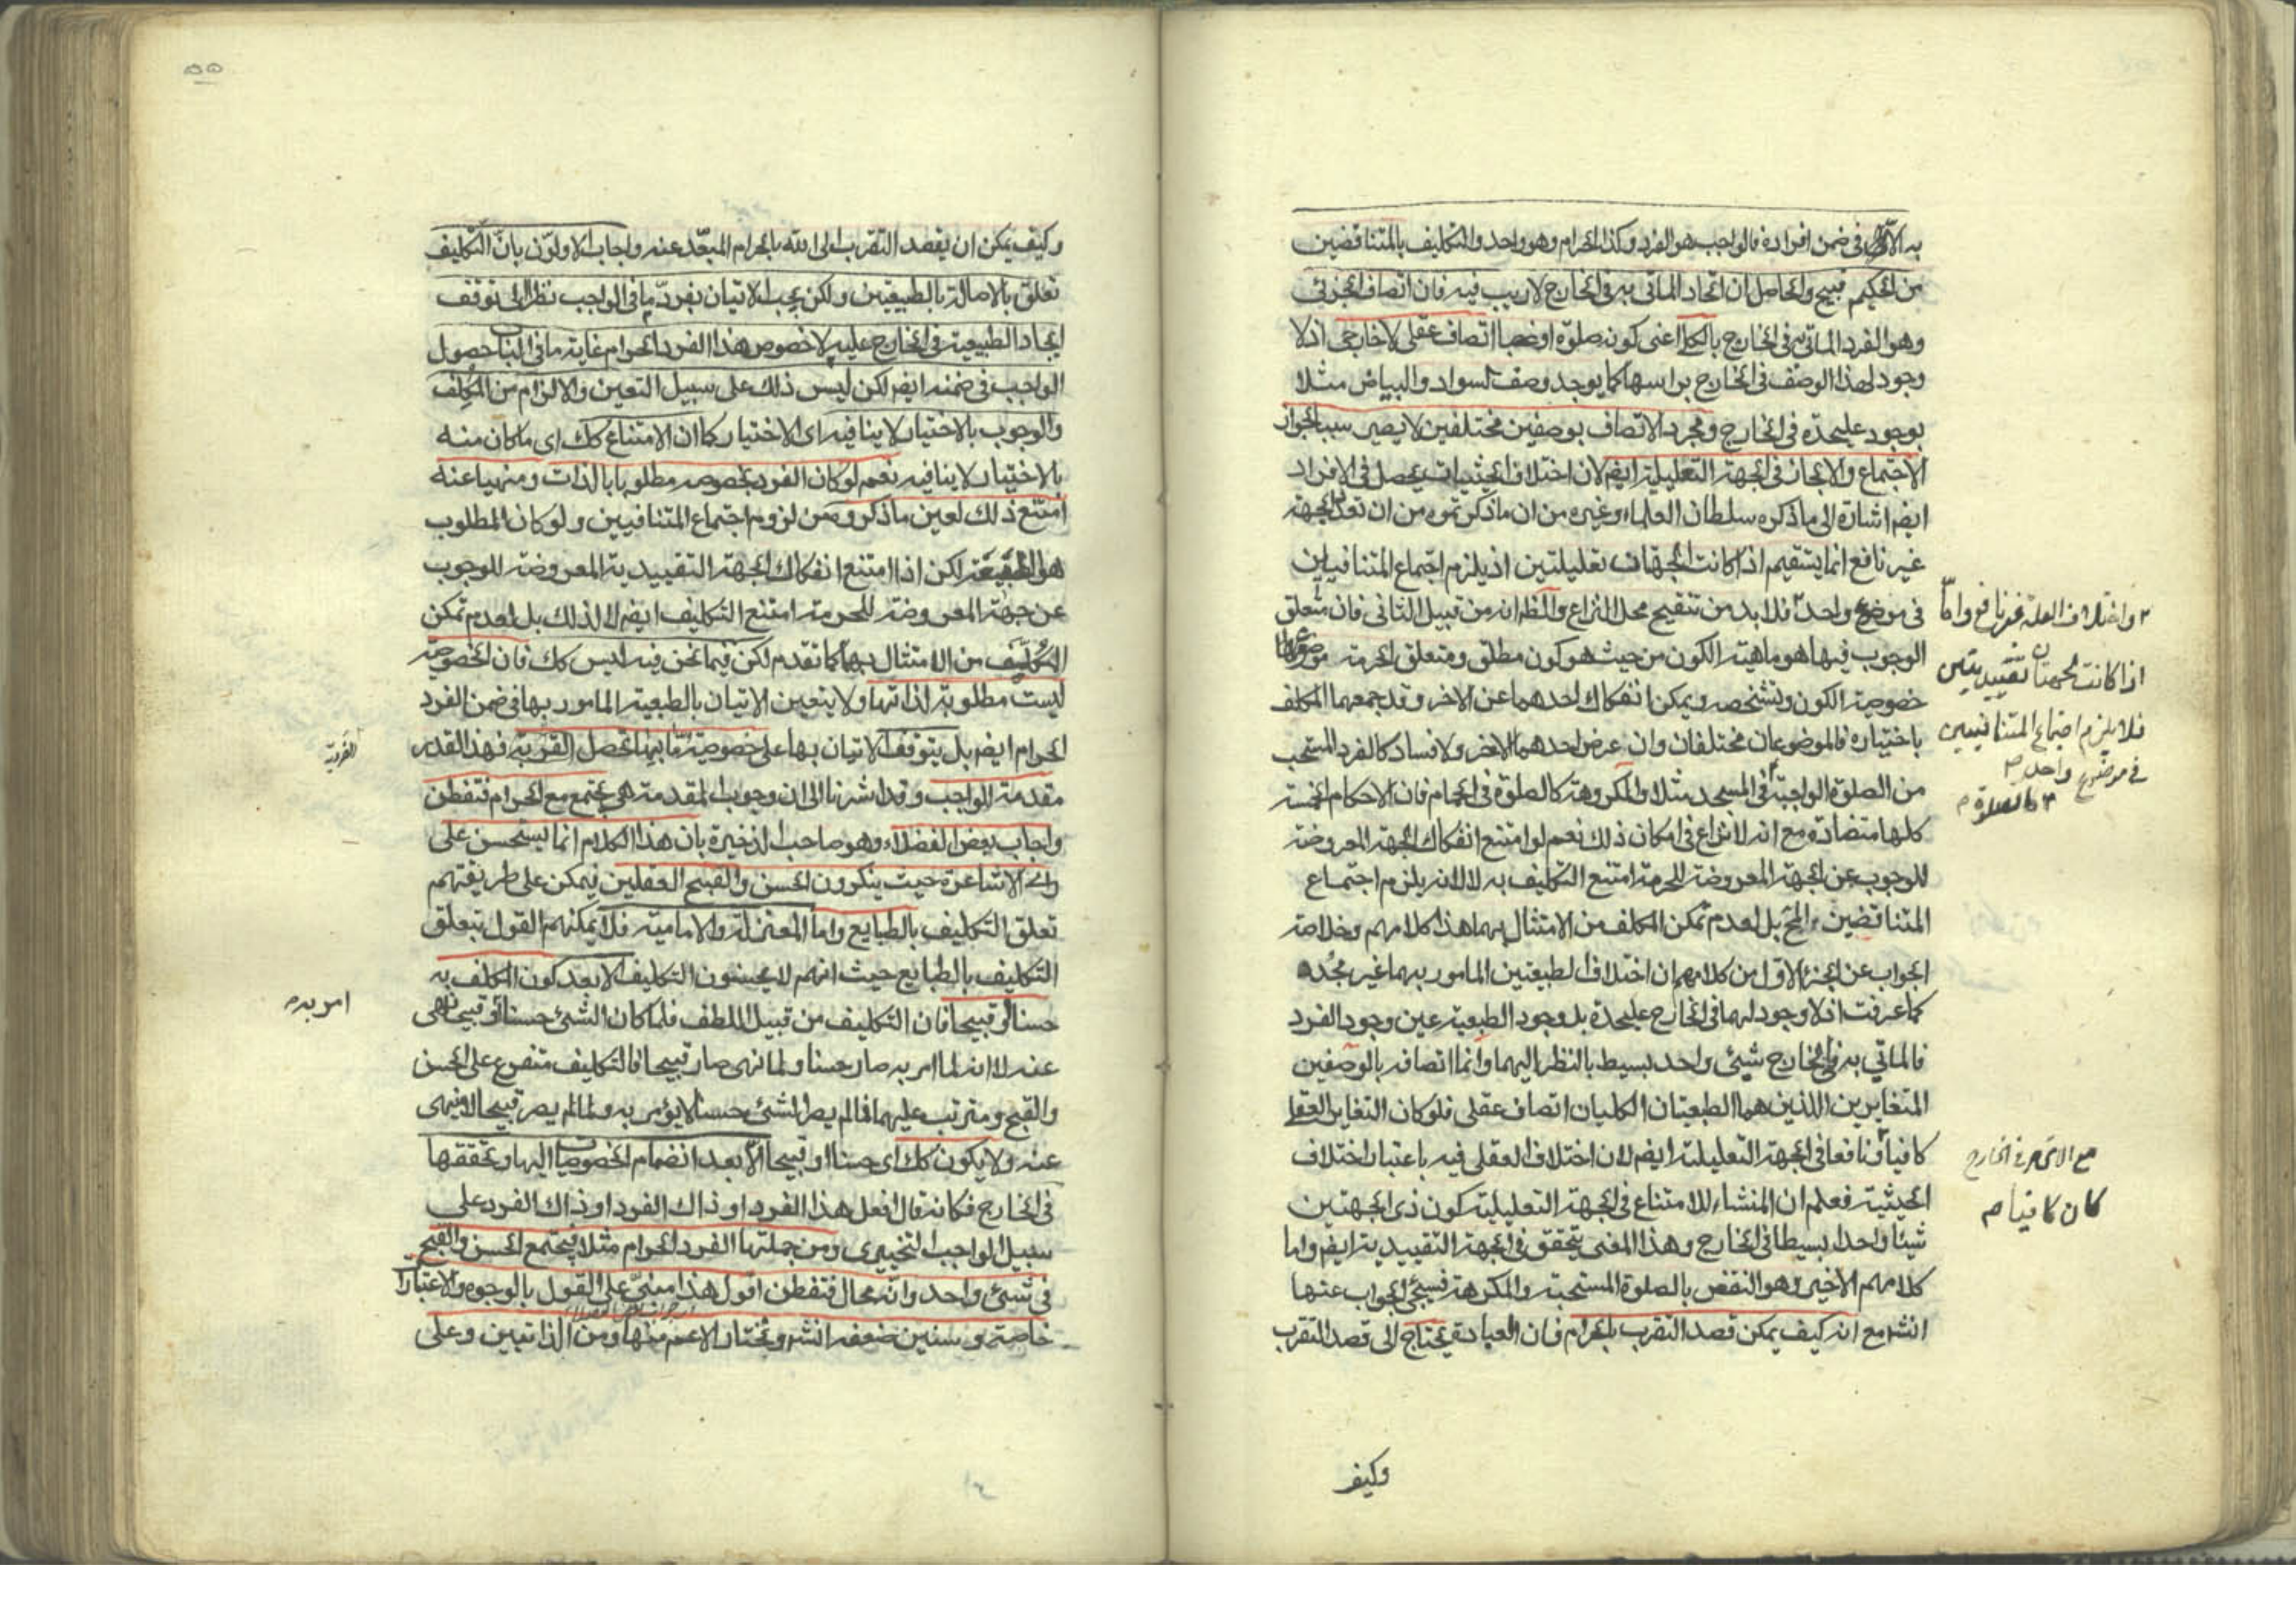 به الا في ضمن افراده فالواجب هو الفرد وكذا الحرام وهو واحد والتكليف بالمتناقضين
من الحكيم قبيح والحاصل ان اتحاد الماتي به في الخارج لاريب فيه فان اتصاف الجزئي
وهو الفرد الماتي به في الخارج بالكلي اعني كونه صلوة او غصبا اتصاف عقلي لا خارجي اذ لا
وجود لهذا الوصف في الخارج براسها كما يوجد وصف السواد والبياض مثلا
بوجود عليحدة في الخارج ومجرد الاتصاف بوصفين مختلفين لا يصير سببا لجواز
الاجتماع والا لجاز في الجهة التعليلية ايضا لان اختلاف الحيثيات يحصل في الافراد
ايضا اشارة الى ما ذكره سلطان العلماء وغيره من ان ما ذكرتموه من ان تعدد الجهة
غير نافع انما يستقيم اذا كانت الجهتان تعليليتين اذ يلزم اجتماع المتنافيين
في موضوع واحد فلا بد من تنقيح محل النزاع والظ انه من قبيل الثاني فان متعلق
الوجوب فيها هو ماهية الكون من حيث هو كون مطلق ومتعلق الحرمة
خصوصية الكون وتشخصه ويمكن انفكاك احدهما عن الاخر وقد جمعهما المكلف
باختياره فالموضوعان مختلفان وان عرض احدهما الاخر ولا فساد كالفرد المستحب
من الصلوة الواجبة في المسجد مثلا والمكروهة كالصلوة في الحمام فان الاحكام الخمسة
كلها متضادة مع انه لا نزاع في امكان ذلك نعم لو امتنع انفكاك الجهة المعروضة
للوجوب عن الجهة المعروضة للحرمة امتنع التكليف به لا لانه يلزم اجتماع
المتناقضين المح بل لعدم تمكن المكلف من الامتثال بهما هذا كلامهم وخلاصة
الجواب عن الجزء الاول من كلامهم ان اختلاف الطبيعتين المامور بهما غير مجد
كما عرفت اذ لا وجود لهما في الخارج عليحدة بل وجود الطبيعة عين وجود الفرد
فالماتي به في الخارج شيئ واحد بسيط بالنظر اليهما وانما اتصافه بالوصفين
المتغايرين اللذين هما الطبيعتان الكليان اتصاف عقلي فلو كان التغاير العقلي
كافيا نافعا في الجهة التعليلية ايضا لان اختلاف العقلي فيه باعتبار اختلاف
الحيثية فعلم ان المنشاء للامتناع في الجهة التعليلية كون ذي الجهتين
شيئا واحدا بسيطا في الخارج وهذا المعنى يتحقق في الجهة التقييدية ايضا واما
كلامهم الاخير وهو النقض بالصلوة المستحبة والمكروهة فسيجئ الجواب عنها
انشا مع انه كيف يمكن قصد التقرب بالحرام فان العبادة يحتاج الى قصد التقرب
وكيف
واختلاف العلة غير نافع واما
اذا كانت الجهتان تقييديتين
فلا يلزم اجتماع المتنافيين
في موضوع واحد
كالصلوة
مع الاتحاد في الخارج
كان كافيا
٥٥
وكيف يمكن ان يقصد التقرب الى الله بالحرام المبعد عنه واجاب الاولون بان التكليف
تعلق بالاصالة بالطبيعتين ولكن يجب الاتيان بفرد ما في الواجب نظرا الى توقف
ايجاد الطبيعة في الخارج عليه لا خصوص هذا الفرد الحرام غاية ما في الباب حصول
الواجب في ضمنه ايضا لكن ليس ذلك على سبيل التعين والالزام من المكلف
والوجوب بالاختيار لا ينافيه اي الاختيار كما ان الامتناع كك اي ما كان منه
بالاختيار لا ينافيه نعم لو كان الفرد بخصوصه مطلوبا بالذات ومنهيا عنه
امتنع ذلك لعين ما ذكروه من لزوم اجتماع المتنافيين ولو كان المطلوب
هو الطبيعة لكن اذا امتنع انفكاك الجهة التقييدية المعروضة للوجوب
عن جهة المعروضة للحرمة امتنع التكليف ايضا لا لذلك بل لعدم تمكن
المكلف من الامتثال بهما كما تقدم لكن فيما نحن فيه ليس كك فان الخصوصية
ليست مطلوبة لذاتها ولا يتعين الاتيان بالطبيعة المامور بها في ضمن الفرد
الحرام ايضا بل يتوقف الاتيان بها على خصوصية ما بها تحصل القربة فهذا القدر
مقدمة الواجب وقد اشرنا الى ان وجوب المقدمة هي يجتمع مع الحرام فتفطن
واجاب بعض الفضلاء وهو صاحب الذخيرة بان هذا الكلام انما يستحسن على
راي الاشاعرة حيث ينكرون الحسن والقبح العقليين فيمكن على طريقتهم
تعلق التكليف بالطبايع واما المعتزلة والامامية فلا يمكنهم القول بتعلق
التكليف بالطبايع حيث انهم لا يجيزون التكليف الا بعد كون المكلف به
حسنا او قبيحا فان التكليف من قبيل اللطف فلما كان الشئ حسنا او قبيحا نهى
عنه لا انه لما امر به صار حسنا ولما نهى صار قبيحا فالتكليف متفرع على الحسن
والقبح ومترتب عليهما فما لم يصر الشئ حسنا لا يؤمر به ولما لم يصر قبيحا لا ينهى
عنه ولا يكون كك اي حسنا او قبيحا الا بعد انضمام الخصوصيات اليها وتحققها
في الخارج فكانه قال افعل هذا الفرد او ذاك الفرد او ذاك الفرد على
سبيل الواجب التخييري ومن جملتها الفرد الحرام مثلا فيجتمع الحسن والقبح
في شئ واحد وانه محال فتفطن اقول هذا مبني على القول بالوجوه والاعتبارات
خاصة وسنبين ضعفه انشا ونختار الاعم منها ومن الذاتيين وعلى
الفردية
امر به